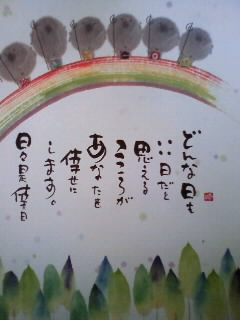 どんな日も
いい日だと
思える
こころが
あなたを
倖せに
します。
日々是倖日